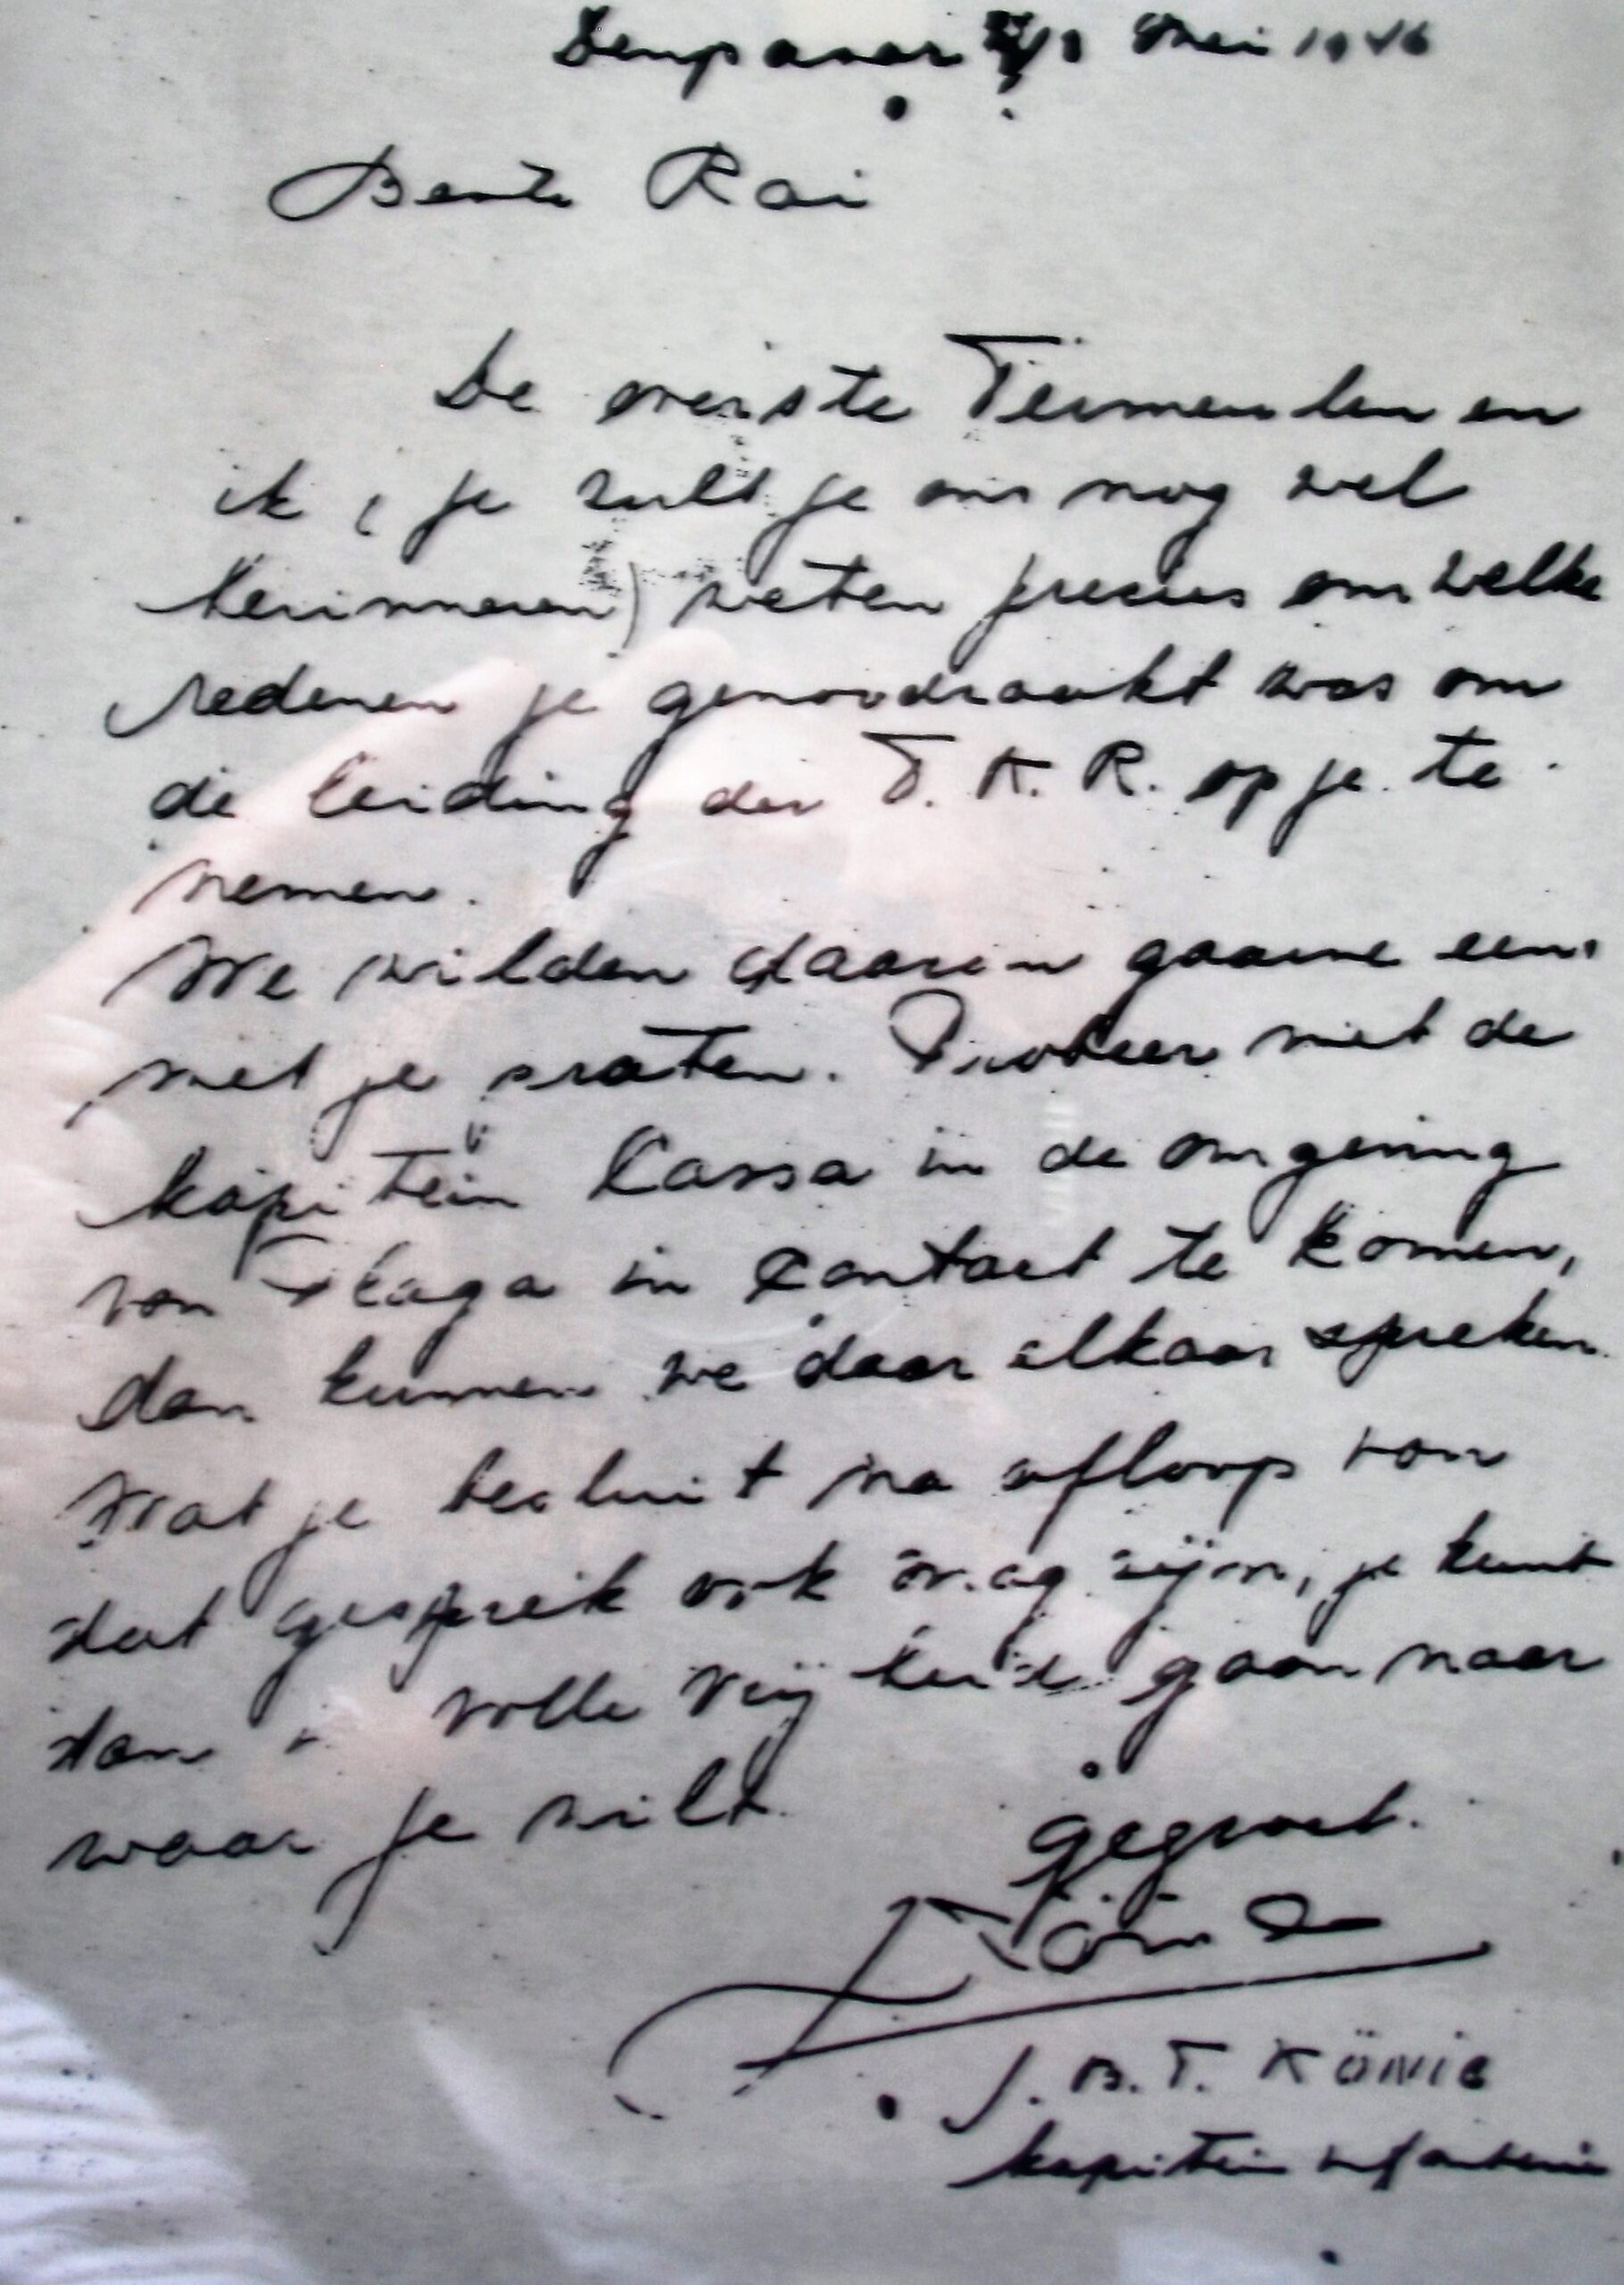 Denpasar Mei 1946
Beste Rai
De overste Termeulen en
ik, je zult je ons nog wel
herinneren) weten precies om welke
redenen je genoodzaakt was om
de leiding der T. K. R. op je te
nemen.
We wilden daarin gaarne eens
met je praten. Probeer met de
kapitein Cassa in de omgeving
van Plaga in contact te komen,
dan kunnen we daar elkaar spreken.
Wat je besluit na afloop van
dat gesprek ook mag zijn, je kunt
dan in volle vrijheid gaan naar
waar je wilt.
Gegroet.
König
J. B. T. KÖNIG
kapitein infanterie